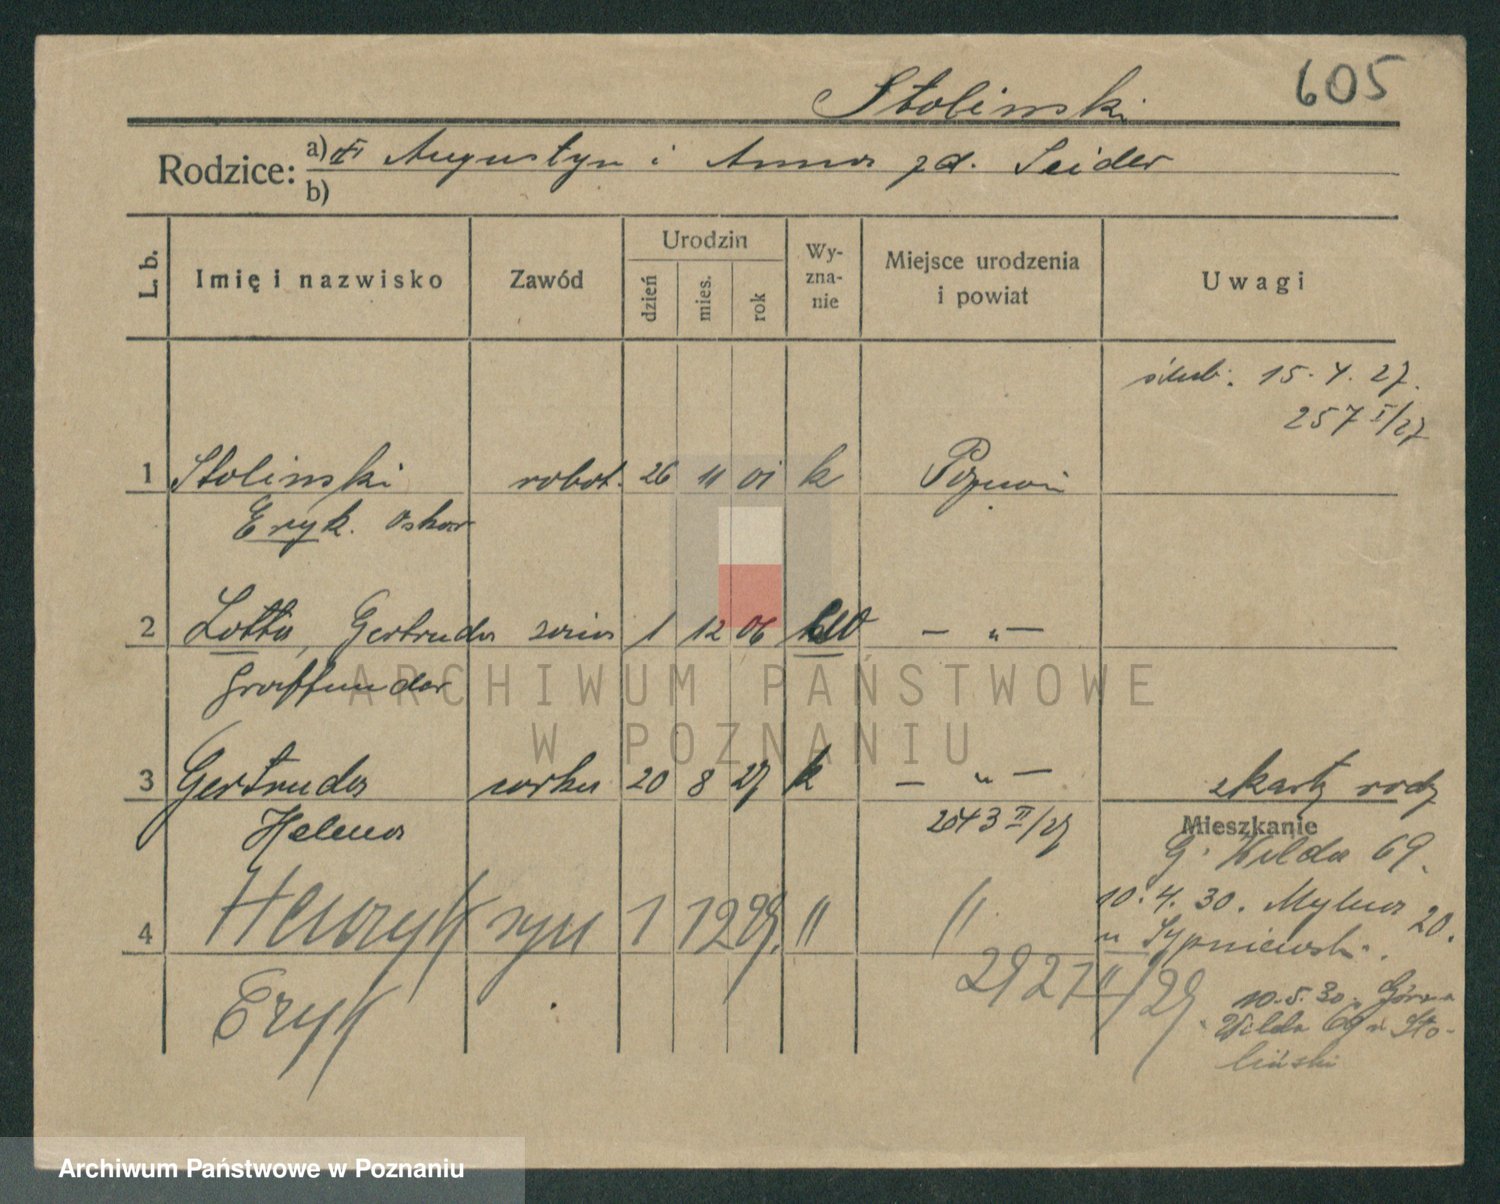 605
Stoliński
Rodzice: a) Augustyn i Anna zd. Seider
b)
L. b. Imię i nazwisko Zawód Urodzin dzień mies. rok Wy- zna- nie Miejsce urodzenia i powiat Uwagi
ślub. 15. 4. 27.
257 I/27
1 Stolinski robot. 26 11 01 k Poznań
Eryk. Oskar
2 Lotta, Gertruda żona 1 12 06 — „ —
Graffunder
3 Gertruda córka 20 8 27 k — „ — z karty rodz
Helena 2043 II/27 Mieszkanie
G. Wilda 69.
10. 4. 30. Mylna 20.
4 Henryk syn 1 12 29. " " u Sypniewski.
Eryk 2927 II/29 10. 5. 30. Górna
Wilda 69 u Sto-
liński
ARCHIWUM PAŃSTWOWE
W POZNANIU
Archiwum Państwowe w Poznaniu